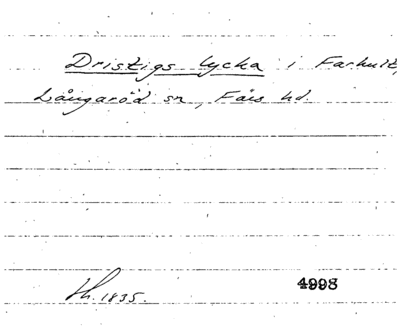 Dristigs lycka i Farhult,
Långaröd sn, Färs hd.
Th. 1835.
4998